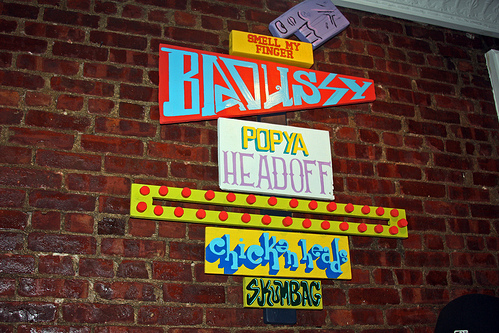 SMELL MY
FINGER
POPYA
HEADOFF
Chickenheads
SKUMBAG